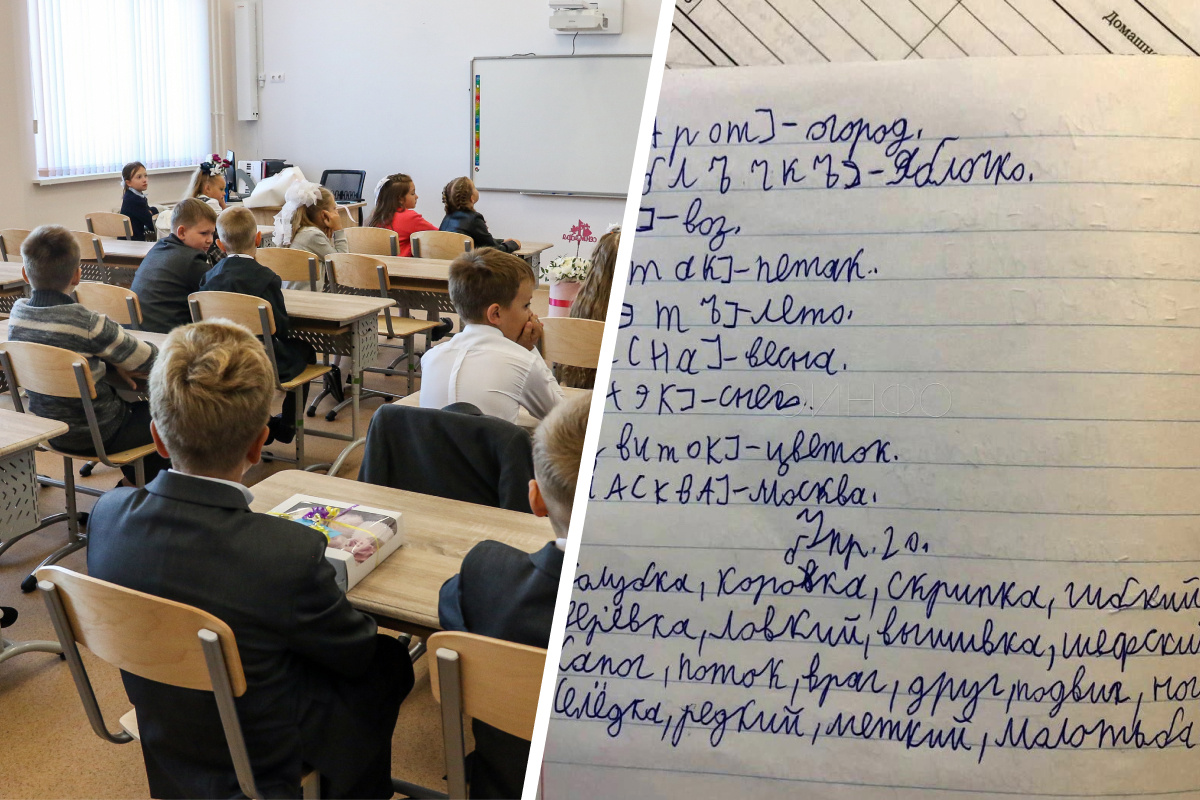 Домашн
рот]-огород.
блъчкъ]-Яблочко.
]-воз.
так]-петак.
э тъ]-лето.
сна]-весна.
эк]-снег.
виток]-цветок.
АСКВА]-Москва.
Упр. 20.
олубка, коровка, скрипка, гибкий
ерёвка, ловкий, вышивка, шефский
сапог, поток, враг, друг, подвиг, ног
Селёдка, редкий, меткий, малотьба